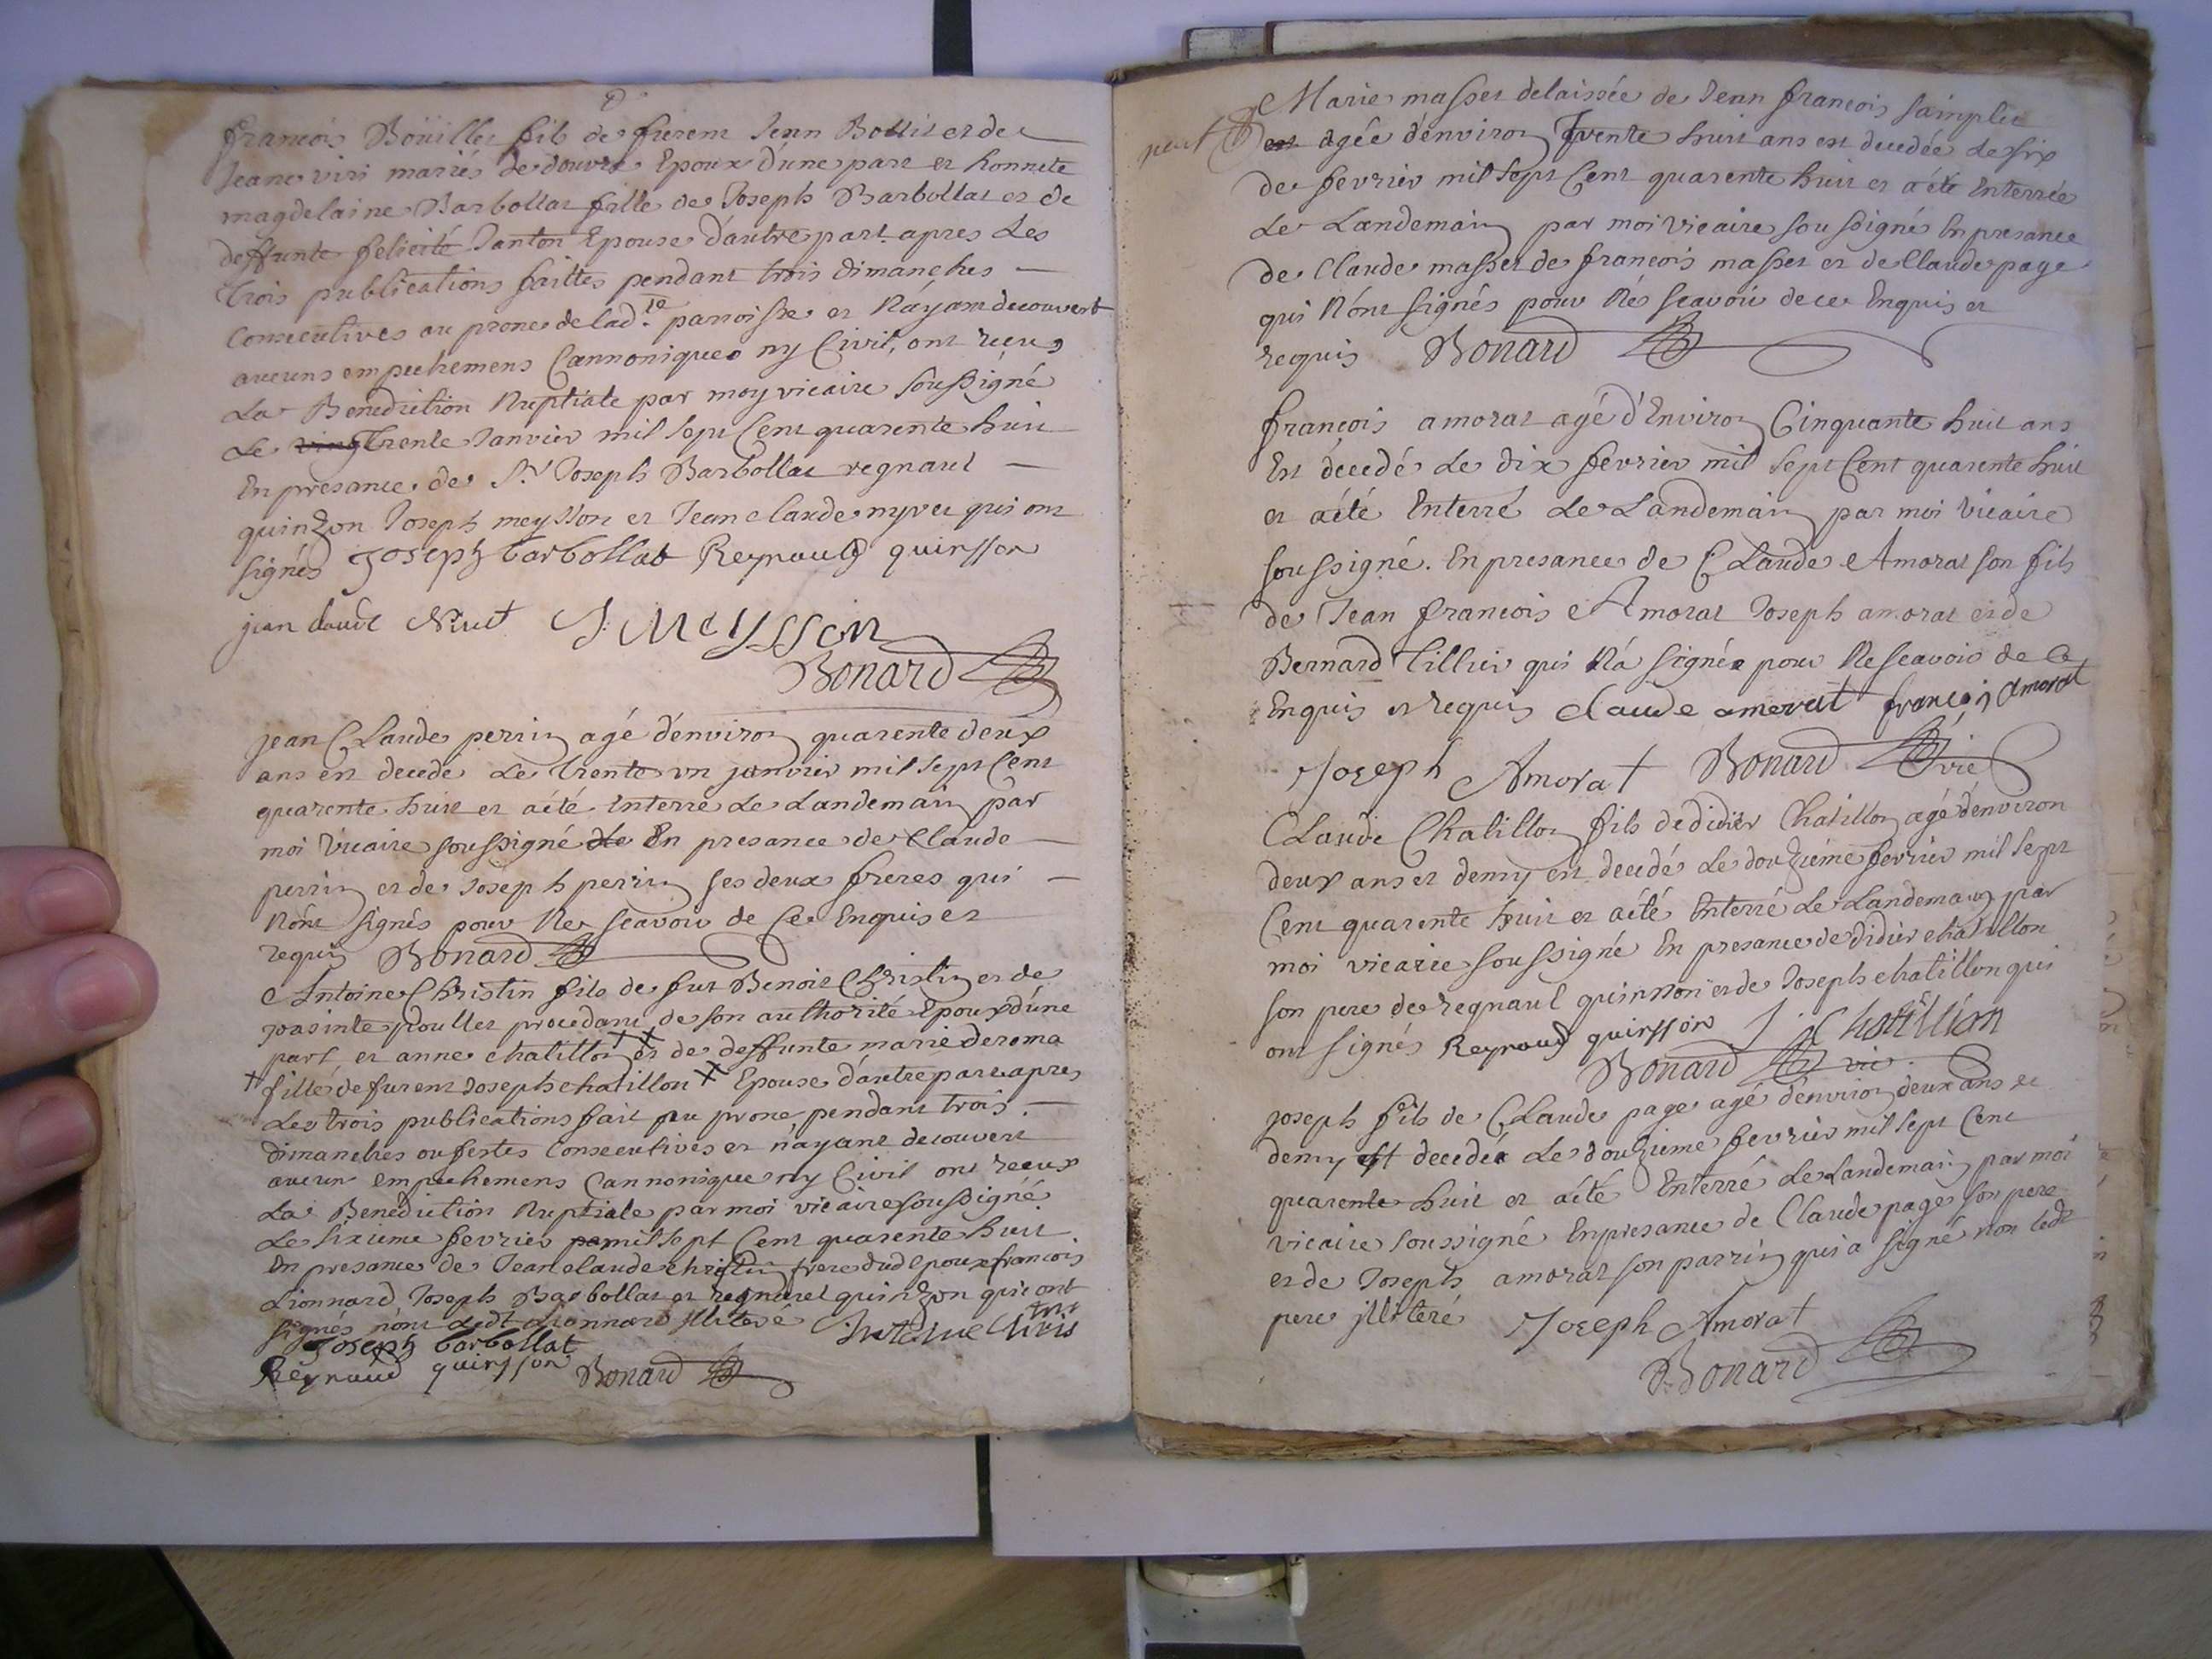 françois Boüillet fils de furent Jean Bollit et de
Jeane viri mariés de douvre Epoux d'une part et honnete
magdelaine Barbollat fille de Joseph Barbollat et de
deffunte felicité Janton Epouse d'autre part apres les
trois publications faittes pendant trois dimanches —
Consecutives au prone de lad.te parroisse et N'áyant decouvert
aucuns empechemens Cannoniques ny Civil, ont reçus
La Benediction Nuptiale par moy vicaire soussigné
Le vingt trente Janvier mil sept Cent quarente huit
En presance de Sr Joseph Barbollat regnaul —
quinzon Joseph meysson et Jean claude nyvet qui ont
signés Joseph barbollat Reynaud quinsson
jean claude Nivet J. Meysson
Bonard
jean CLaude perrin agé d'environ quarente deux
ans est decede Le trente un janvier mil sept Cent
quarente huit et a été Interré Le Landemain par
moi Vicaire soussigné de En presance de Claude —
perrin et de Joseph perrin ses deux freres qui —
N'ont signés pour Ne scavoir de Ce Enquis et
requis Bonard
Antoine Christin fils de fut Benoit Christin et de
poullet procedant de son authorité Epoux d'une
part et anne chatillon et de deffunte marie deroma
fille de furent Joseph chatillon Epouse d'autre part apres
Les trois publications fait au prone pendant trois —
dimanches ou festes Consecutives et n'ayant decouvert
aucun empechemens Cannonique ny Civil ont recus
La Benediction Nuptiale par moi vicaire soussigné
Le sixieme fevrier mil sept Cent quarente huit
En presance de Jean claude christin frere dud epoux francois
Lionnard Joseph Barbollat et regnaul quinzon qui ont
signés non ledt Lionnard jlliteré
Joseph barbollat
Reynaud quinsson Bonard
Marie masset delaissée de Jean françois sainplie
est agée d'environ trente huit ans est decedée le six
de fevrier mil sept Cent quarente huit et a été Enterrée
Le Landemain par moi vicaire soussigné En presance
de Claude masset de francois masset et de Claude page
qui N'ont signés pour Ne scavoir de ce Enquis et
requis Bonard
françois amorat agé d'Environ Cinquante huit ans
Est decedé Le dix fevrier mil sept Cent quarente huit
et a été Enterré Le Landemain par moi Vicaire
soussigné. En presance de CLaude Amorat son fils
de Jean francois Amorat Joseph amorat et de
Bernard Tillier qui N'a signée pour Ne scavoir de Ce
Enquis et requis claude amorat françois Amorat
Joseph Amorat Bonard vic
CLaude Chatillon fils de didier Chatillon agé d'environ
deux ans et demy est decedé Le douzieme fevrier mil sept
Cent quarente huit et a été Enterré Le Landemain par
moi vicarie soussigné En presance de didier chatillon
son pere de regnaul quinsson et de Joseph chatillon qui
ont signés Reynaud quinsson J. Chatillion
Bonard vic
joseph fils de CLaude page agé d'environ deux ans et
demy est decedé Le douzieme fevrier mil sept Cent
quarente huit et a été Enterré Le Landemain par moi
vicaire soussigné En presance de Claude page son pere
et de Joseph amorat son parrin qui a signé non ledt
pere jlliteré Joseph Amorat
Bonard